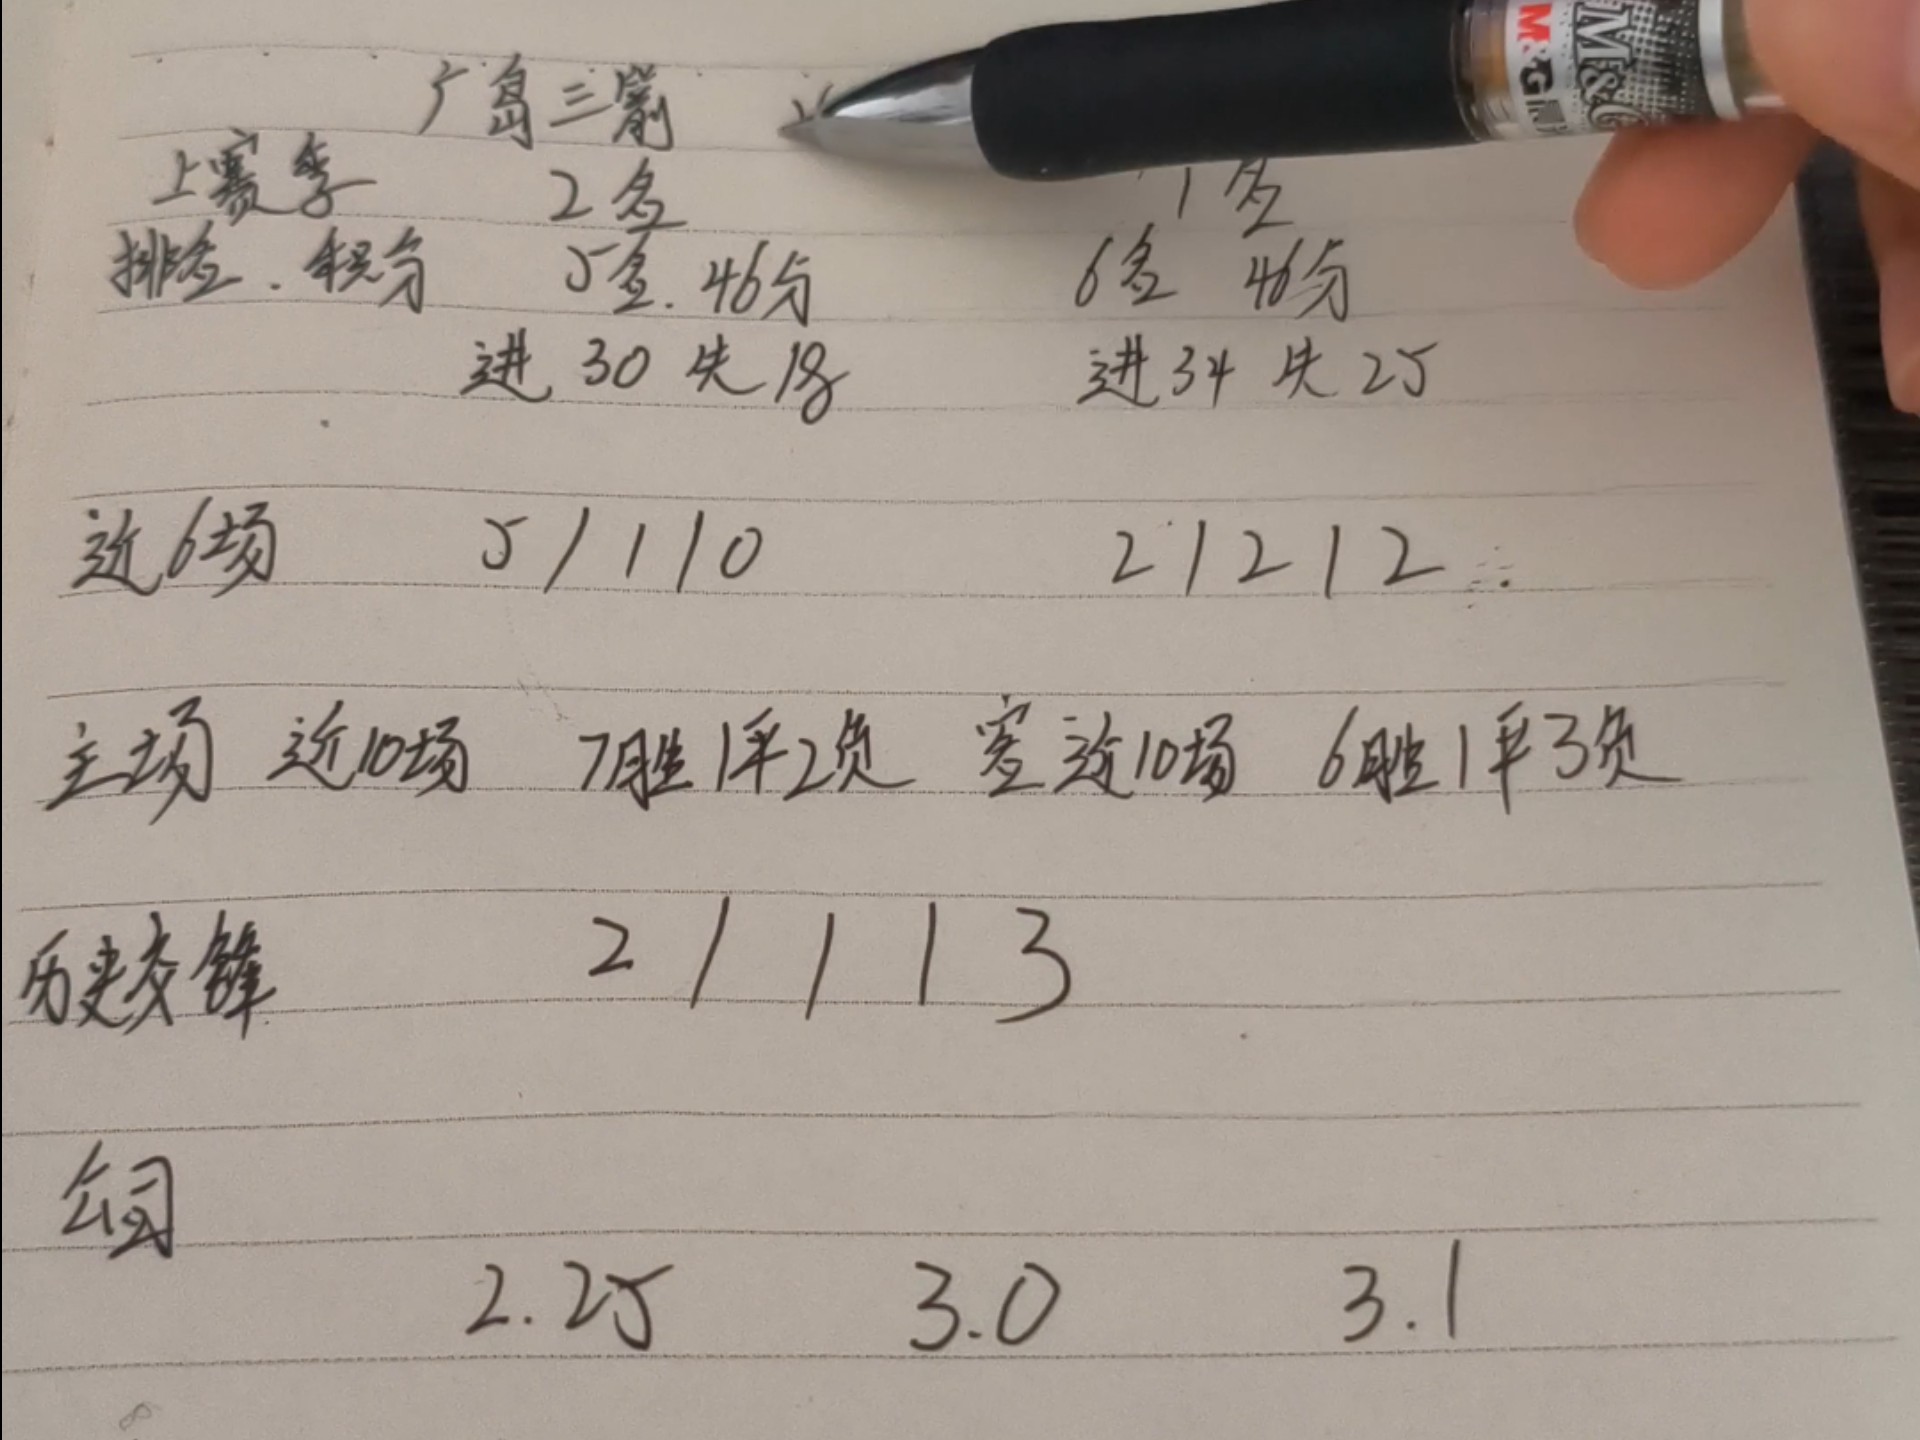 广岛三箭
上赛季 2名 1名
排名.积分 5名.46分 6名 46分
进30失18 进34失25
近6场 5/1/0 2/2/2
主场 近10场 7胜1平2负 客近10场 6胜1平3负
历史交锋 2/1/3
公司
2.25 3.0 3.1
M&G
M&G